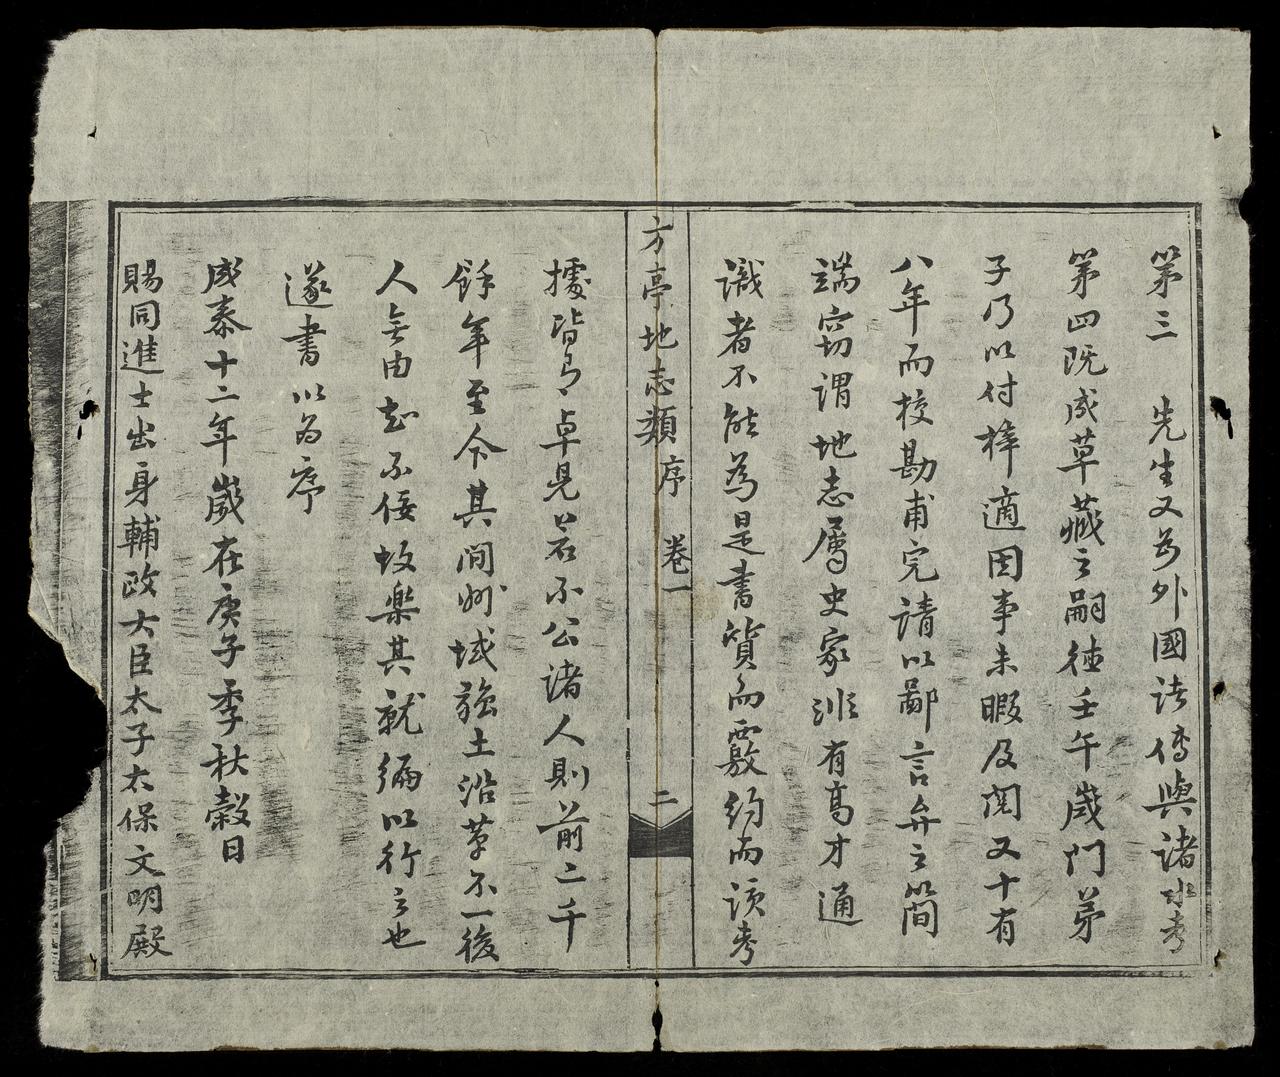 第三　先生又為外國諸傳與諸水考
第四既成草藏之嗣德壬午歲門弟
子乃以付梓適因事未暇及閱又十有
八年而校勘甫完請以鄙言弁之簡
端窃謂地志屬史家派有高才通
識者不能為是書質而覈約而該考
方亭地志類　序　卷一　二
據皆有卓見若不公諸人則前二千
餘年至今其間州域疆土沿革不一後
人無由知不佞故樂其就編以行之也
遂書以為序
成泰十二年歲在庚子季秋穀日
賜同進士出身輔政大臣太子太保文明殿